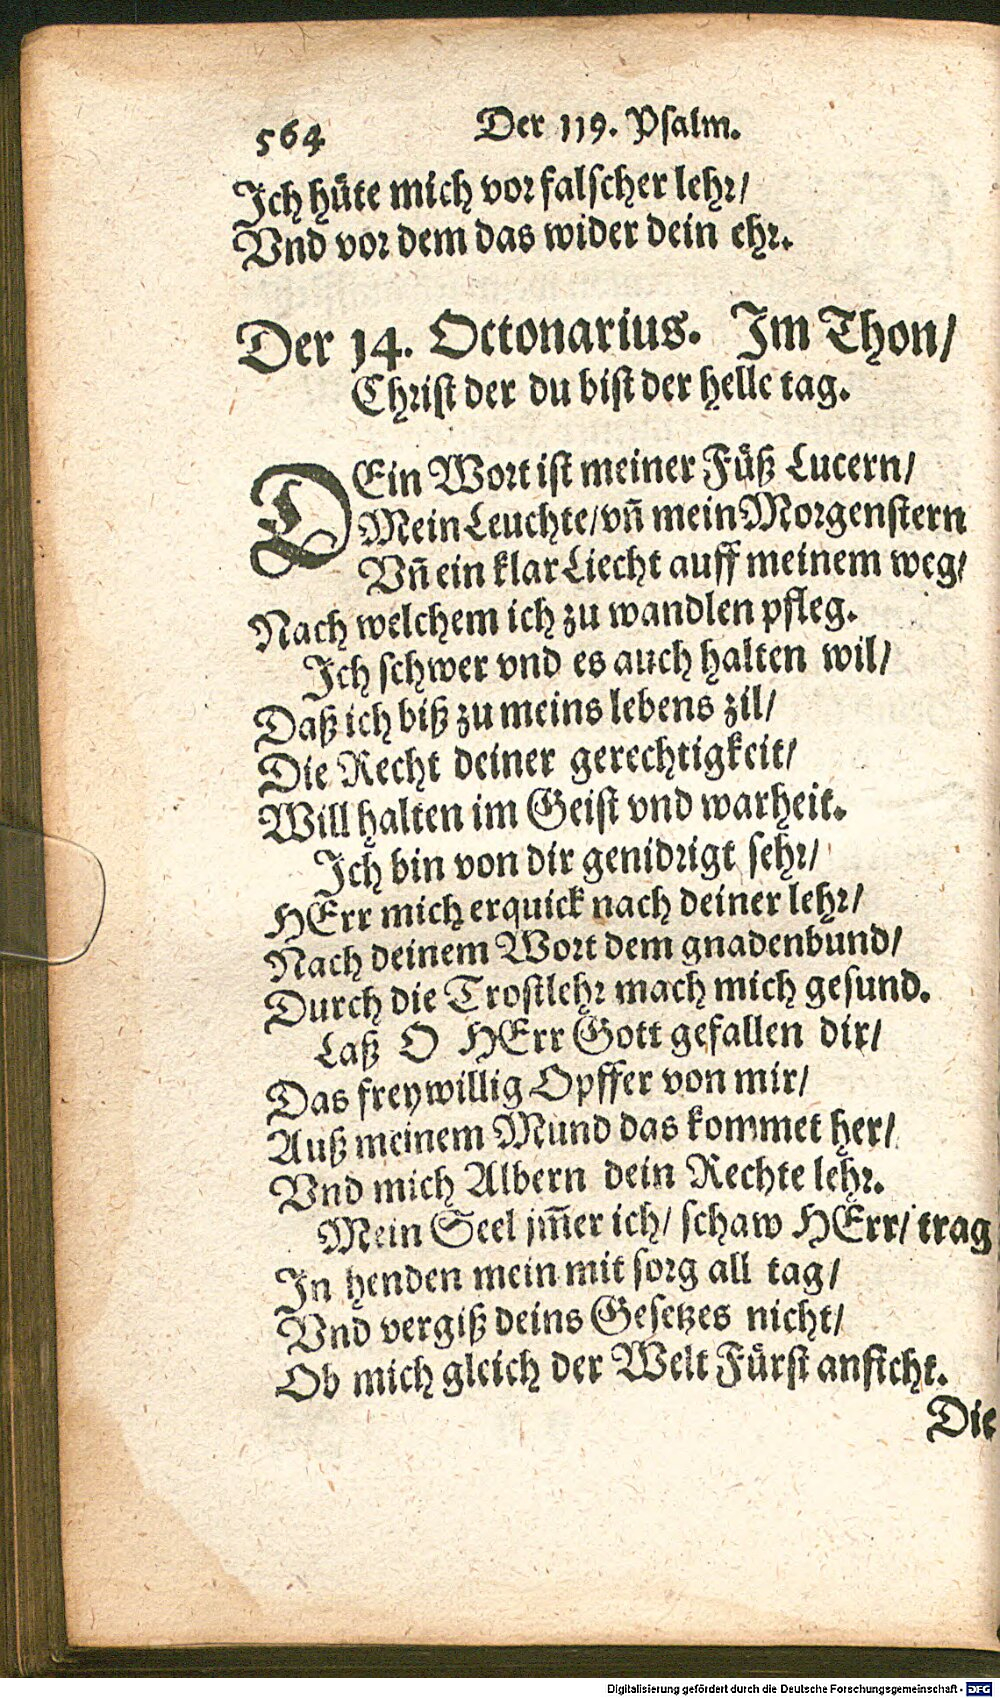 564 Der 119. Psalm.
Ich hüte mich vor falscher lehr/
Vnd vor dem das wider dein ehr.
Der 14. Octonarius. Im Thon/
Christ der du bist der helle tag.
DEin Wort ist meiner Füß Lucern/
Mein Leuchte/ vñ mein Morgenstern
Vñ ein klar Liecht auff meinem weg/
Nach welchem ich zu wandlen pfleg.
Ich schwer vnd es auch halten wil/
Daß ich biß zu meins lebens zil/
Die Recht deiner gerechtigkeit/
Will halten im Geist vnd warheit.
Ich bin von dir genidrigt sehr/
HErr mich erquick nach deiner lehr/
Nach deinem Wort dem gnadenbund/
Durch die Trostlehr mach mich gesund.
Laß O HErr Gott gefallen dir/
Das freywillig Opffer von mir/
Auß meinem Mund das kommet her/
Vnd mich Albern dein Rechte lehr.
Mein Seel jm̃er ich/ schaw HErr/ trag
In henden mein mit sorg all tag/
Vnd vergiß deins Gesetzes nicht/
Ob mich gleich der Welt Fürst anficht.
Die
Digitalisierung gefördert durch die Deutsche Forschungsgemeinschaft - DFG